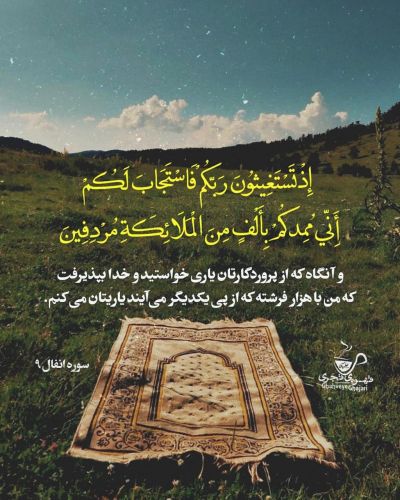 إِذْ تَسْتَغِيثُونَ رَبَّكُمْ فَاسْتَجَابَ لَكُمْ
أَنِّي مُمِدُّكُمْ بِأَلْفٍ مِنَ الْمَلَائِكَةِ مُرْدِفِينَ
و آنگاه که از پروردکارتان یاری خواستید و خدا بپذیرفت
که من با هزار فرشته که از پی یکدیگر می‌آیند یاریتان می‌کنم.
سوره انفال ۹
قهوه‌ی قجری